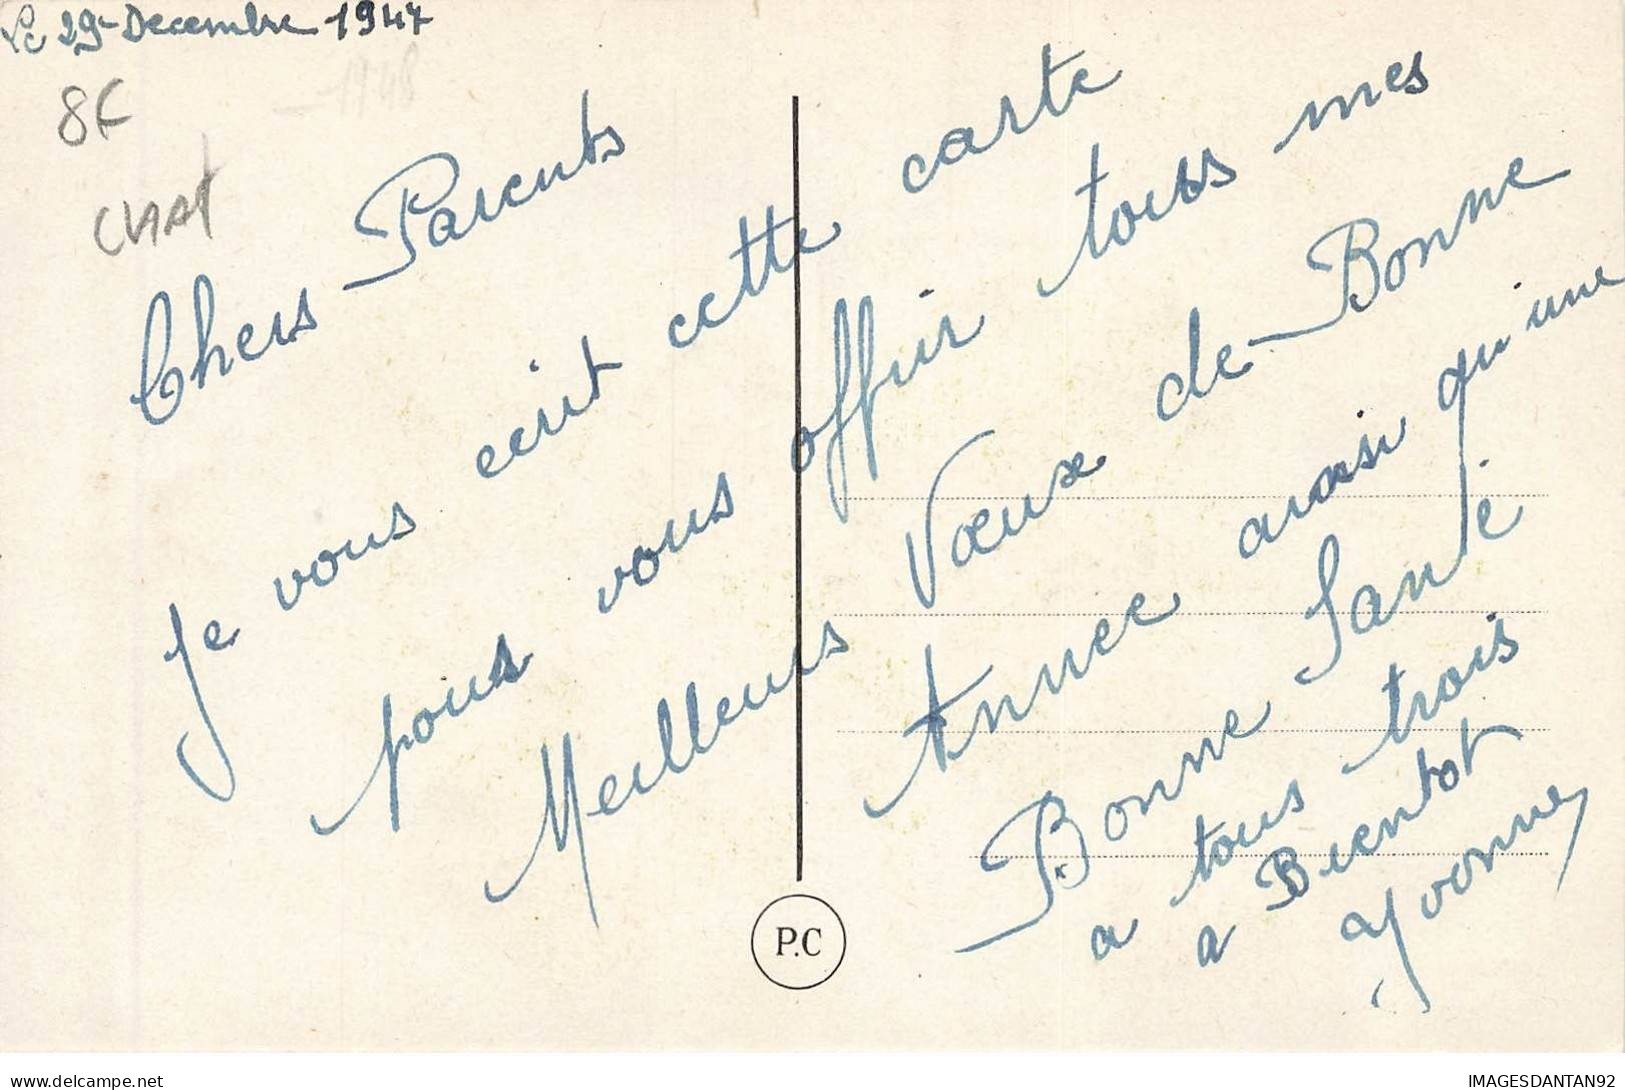 Le 29 Decembre 1947
1948
8€
CHAT
Chers Parents
Je vous ecrit cette carte
pour vous offrir tous mes
Meilleurs Vœux de Bonne
Annee ausi qu'une
Bonne Santé
a tous trois
a Bientot
Yvonne
P.C
delcampe.net
IMAGESDANTAN92